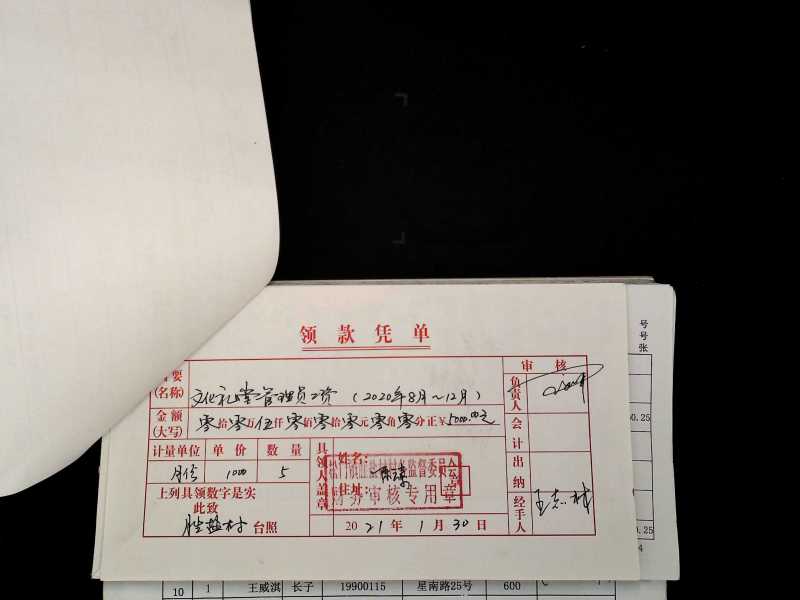 领款凭单
摘要 文化礼堂管理员工资（2020年8月～12月）
(名称)
金额 零拾零万伍仟零佰零拾零元零角零分正¥5000.00元
(大写)
计量单位 单价 数量
月份 1000 5
上列具领数字是实
此致
台照
具领人盖章
姓名:
住址:
监督委员会
财务审核专用章
2021年1月30日
审核
负责人
会计
出纳
经手人
号
号
张
0.25
0.25
4
10 1 王威淇 长子 19900115 星南路25号 600